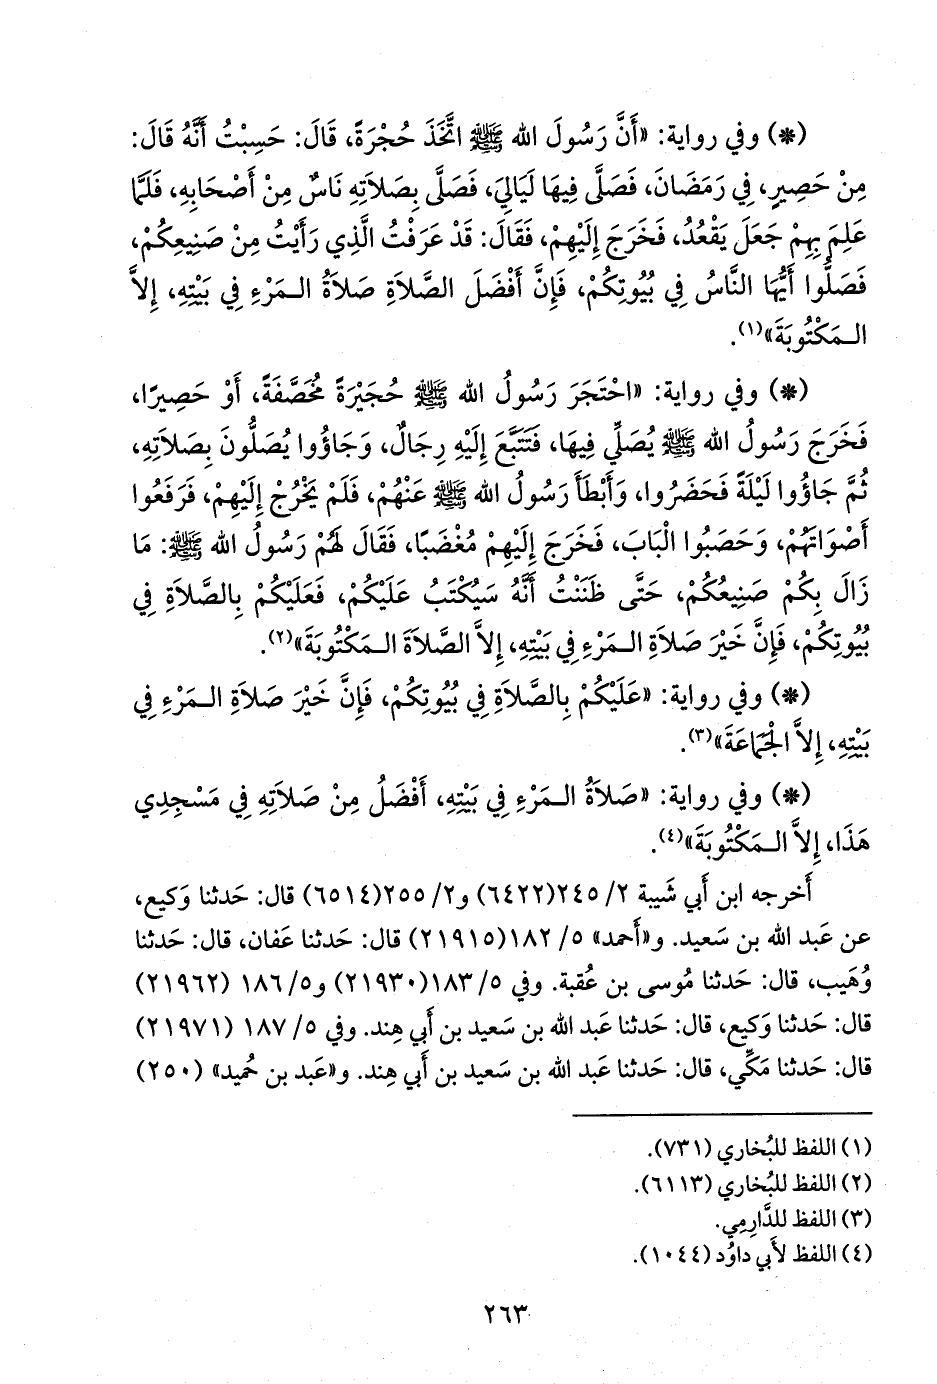 (*) وفي رواية: «أَنَّ رَسُولَ الله ﷺ اتَّخَذَ حُجْرَةً، قَالَ: حَسِبْتُ أَنَّهُ قَالَ:
مِنْ حَصِيرٍ، فِي رَمَضَانَ، فَصَلَّى فِيهَا لَيَالِيَ، فَصَلَّى بِصَلاَتِهِ نَاسٌ مِنْ أَصْحَابِهِ، فَلَمَّا
عَلِمَ بِهِمْ جَعَلَ يَقْعُدُ، فَخَرَجَ إِلَيْهِمْ، فَقَالَ: قَدْ عَرَفْتُ الَّذِي رَأَيْتُ مِنْ صَنِيعِكُمْ،
فَصَلُّوا أَيُّهَا النَّاسُ فِي بُيُوتِكُمْ، فَإِنَّ أَفْضَلَ الصَّلاَةِ صَلاَةُ الـمَرْءِ فِي بَيْتِهِ، إِلاَّ
الـمَكْتُوبَةَ»(١).
(*) وفي رواية: «احْتَجَرَ رَسُولُ الله ﷺ حُجَيْرَةً مُخَصَّفَةً، أَوْ حَصِيرًا،
فَخَرَجَ رَسُولُ الله ﷺ يُصَلِّي فِيهَا، فَتَتَبَّعَ إِلَيْهِ رِجَالٌ، وَجَاؤُوا يُصَلُّونَ بِصَلاَتِهِ،
ثُمَّ جَاؤُوا لَيْلَةً فَحَضَرُوا، وَأَبْطَأَ رَسُولُ الله ﷺ عَنْهُمْ، فَلَمْ يَخْرُجْ إِلَيْهِمْ، فَرَفَعُوا
أَصْوَاتَهُمْ، وَحَصَبُوا الْبَابَ، فَخَرَجَ إِلَيْهِمْ مُغْضَبًا، فَقَالَ لَهُمْ رَسُولُ الله ﷺ: مَا
زَالَ بِكُمْ صَنِيعُكُمْ، حَتَّى ظَنَنْتُ أَنَّهُ سَيُكْتَبُ عَلَيْكُمْ، فَعَلَيْكُمْ بِالصَّلاَةِ فِي
بُيُوتِكُمْ، فَإِنَّ خَيْرَ صَلاَةِ الـمَرْءِ فِي بَيْتِهِ، إِلاَّ الصَّلاَةَ الـمَكْتُوبَةَ»(٢).
(*) وفي رواية: «عَلَيْكُمْ بِالصَّلاَةِ فِي بُيُوتِكُمْ، فَإِنَّ خَيْرَ صَلاَةِ الـمَرْءِ فِي
بَيْتِهِ، إِلاَّ الْجَمَاعَةَ»(٣).
(*) وفي رواية: «صَلاَةُ الـمَرْءِ فِي بَيْتِهِ، أَفْضَلُ مِنْ صَلاَتِهِ فِي مَسْجِدِي
هَذَا، إِلاَّ الـمَكْتُوبَةَ»(٤).
أَخرجه ابن أَبي شَيبة ٢/ ٢٤٥(٦٤٢٢) و٢/ ٢٥٥(٦٥١٤) قال: حَدثنا وَكيع،
عن عَبد الله بن سَعيد. و«أَحمد» ٥/ ١٨٢(٢١٩١٥) قال: حَدثنا عَفان، قال: حَدثنا
وُهَيب، قال: حَدثنا مُوسى بن عُقبة. وفي ٥/ ١٨٣(٢١٩٣٠) و٥/ ١٨٦ (٢١٩٦٢)
قال: حَدثنا وَكيع، قال: حَدثنا عَبد الله بن سَعيد بن أَبي هِند. وفي ٥/ ١٨٧ (٢١٩٧١)
قال: حَدثنا مَكِّي، قال: حَدثنا عَبد الله بن سَعيد بن أَبي هِند. و«عَبد بن حُميد» (٢٥٠)
(١) اللفظ للبُخاري (٧٣١).
(٢) اللفظ للبُخاري (٦١١٣).
(٣) اللفظ للدَّارِمِي.
(٤) اللفظ لأَبي داوُد (١٠٤٤).
٢٦٣